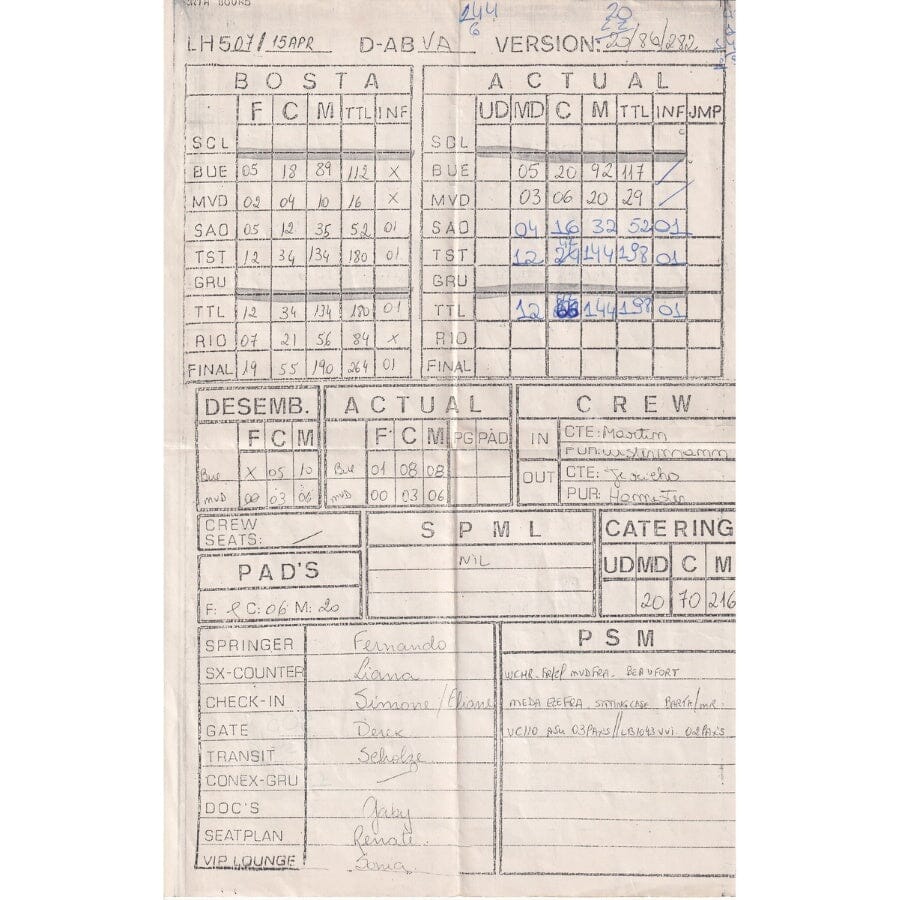 144
6
20
22
LH507/15APR D-ABVA VERSION: 20/86/282
BOSTA ACTUAL
F C M TTL INF UD MD C M TTL INF JMP
SCL SCL
BUE 05 18 89 112 X BUE 05 20 92 117 /
MVD 02 04 10 16 X MVD 03 06 20 29 /
SAO 05 12 35 52 01 SAO 04 16 32 52 01
TST 12 34 134 180 01 TST 12 42 144 198 01
GRU GRU
TTL 12 34 134 180 01 TTL 12 144 198 01
RIO 07 21 56 84 X RIO
FINAL 19 55 190 264 01 FINAL
DESEMB. ACTUAL CREW
F C M F C M PG PAD IN CTE: Martin
PUR:
Bue X 05 10 Bue 01 08 08 OUT CTE: Jericho
MVD 00 03 06 MVD 00 03 06 PUR:
CREW SPML CATERING
SEATS: /
NIL UD MD C M
PAD'S
F: C: 06 M: 20 20 70 216
PSM
SPRINGER Fernando
SX-COUNTER Liana WCHR. MVDFRA. BEAUFORT
CHECK-IN Simone/Eliane MEDA EZEFRA. SITTINGCASE BARTH/MR.
GATE Derek VC110 ASU 03PAXS//LB1043 VVI. 02PAXS
TRANSIT Scholze
CONEX-GRU
DOC'S Gaby
SEATPLAN Renate.
VIP LOUNGE Sonia